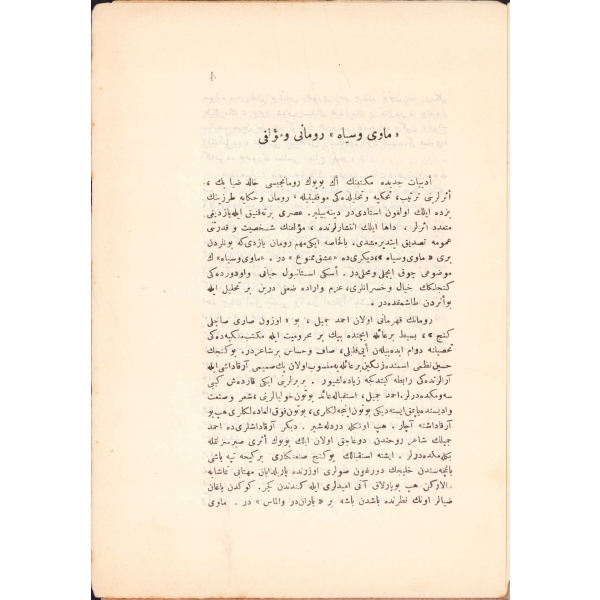 « ماوى وسیاه » رومانى ومؤلفى
ادبیات جدیده مكتبنك اك بویوك رومانجیسى خالد ضیا بك ،
اثرلرینى ترتیب، تحكیه وتحلیلده كى موفقیتیله ، رومان وحكایه طرزینك
بزده ایلك اولغون استادى در دینه بیلیر. عصرى بر تدقیق ایله یازدینى
متعدد اثرلر ، داها ایلك انتشارلرنده ، مؤلفنك شخصیت و قدرتنى
عمومه تصدیق ایتدیرمشدى. بالخاصه ایكى مهم رومان یازدى كه بونلردن
برى « ماوى وسیاه »، دیكرى ده «عشق ممنوع » در . «ماوى وسیاه» ك
موضوعى چوق ایچلى ومحلى در. اسكى استانبول حیاتى واو دورده كى
كنجلكك خیال وخسرانلرى، عزم واراده ضعفى درین بر تحلیل ایله
بو اثردن طاشمقده در .
رومانك قهرمانى اولان احمد جمیل ، بو « اوزون صارى صاچلى
كنج » ، بسیط بر عائله ایچنده بیك بر محرومیت ایله مكتب ملكیه ده كى
تحصیلنه دوام ایده بیلن آبى قلبلى، صاف وحساس بر شاعر در. بو كنجك
حسین نظمى اسمنده زنكین بر عائله یه منسوب اولان پك صمیمى آرقاداشى ایله
آرالرنده كى رابطه كیتدكجه زیاده لشیور . بربرلرینى ایكى قاردش كبى
سومكده درلر. احمد جمیل ، استقباله عائد بوتون خولیالرینى ، شعر و صنعت
وادیسنده یاپمق ایسته دیكى بوتون اینجه لكلرى، بوتون فوق العاده لكلرى هپ بو
آرقاداشنه آچار . هپ اونكله دردله شیر . دیكر آرقاداشلرى ده احمد
جمیلك شاعر روحندن دوغاجق اولان ایلك بویوك اثرى صبرسزلقله
بكله مكده درلر . ایشته استقبالك بو كنج صنعتكارى بر كیجه تپه باشى
باغچه سندن خلیجك دورغون صولرى اوزرنده پاریلدایان مهتابى تماشا یه
دالاركن هپ بو پارلاق آتى امیدلرى ایله كندندن كچر. كوكدن یاغان
ضیالر اونك نظرنده باشدن باشه بر « باران در والماس » در . ماوى